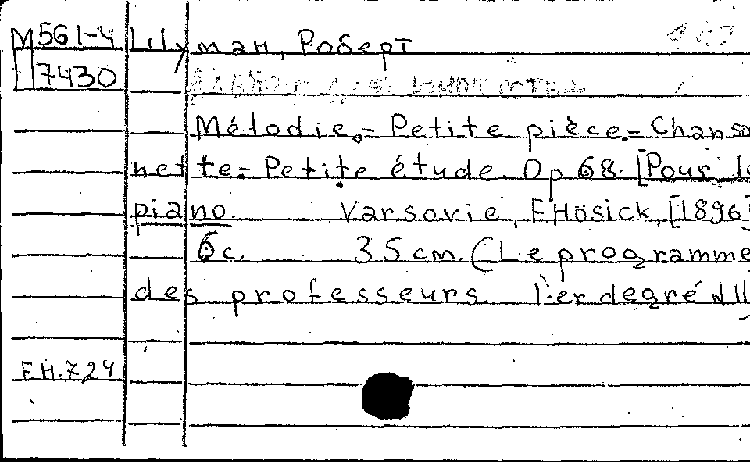 М561-4 Шуман, Роберт
7430
Mélodie.= Petite pièce.= Chanso
nette.= Petite étude. Op 68. [Pour le
piano. Varsovie, F. Hösick, [1896]
6 c. 35 cm. (Le programme
des professeurs. 1-er degré №11